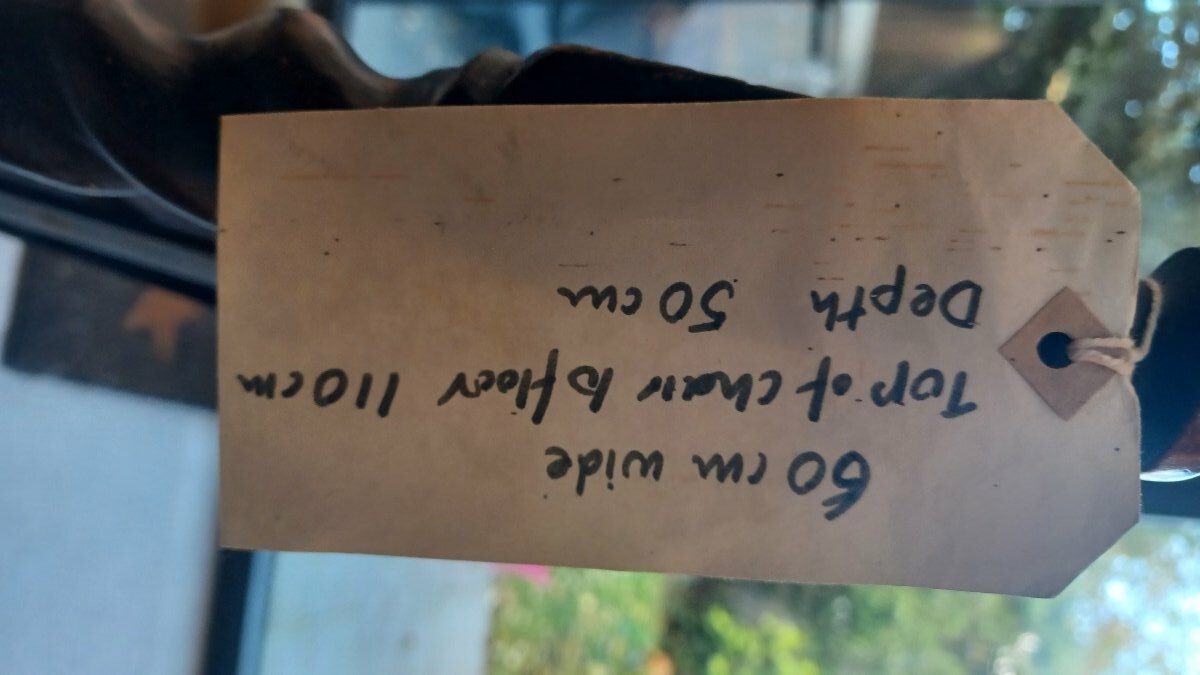 60 cm wide
Top of chair to floor 110 cm
Depth 50 cm